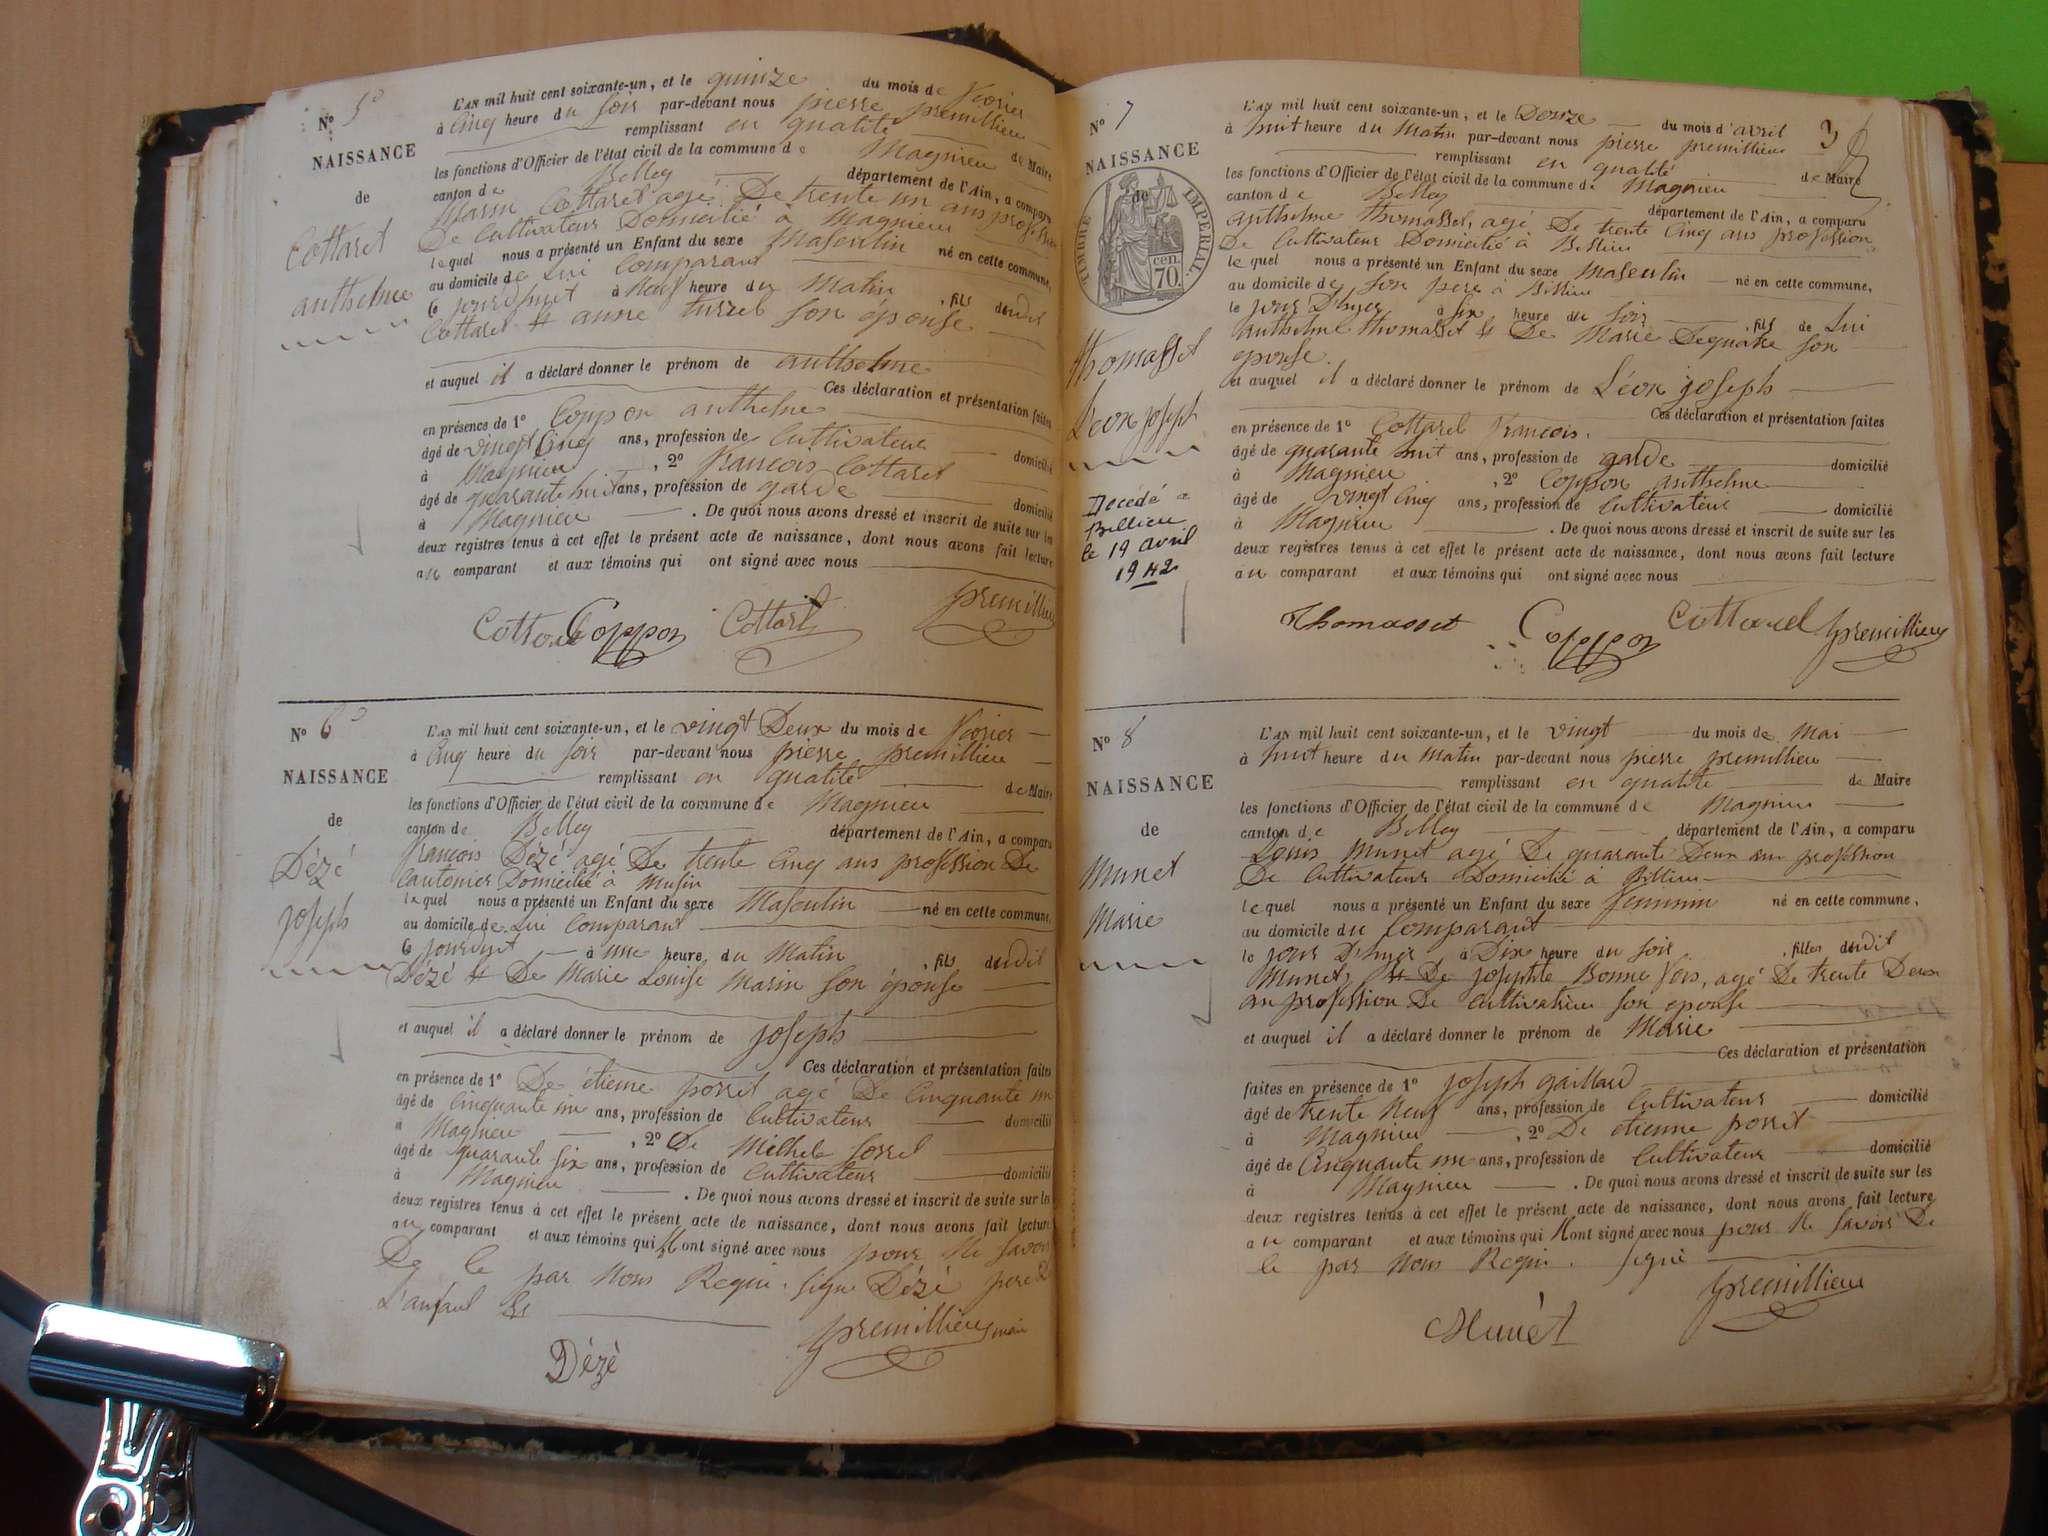 N° 5
NAISSANCE
de
Cottaret
anthelme
L'AN mil huit cent soixante-un, et le quinze du mois de
à Cinq heure du soir par-devant nous pierre premillieu
remplissant en qualité de Maire
les fonctions d'Officier de l'état civil de la commune de Magnieu
canton de Belley département de l'Ain, a comparu
Cottaret agé De trente un ans profession
De Cultivateur Domicilié à Magnieu
lequel nous a présenté un Enfant du sexe Masculin né en cette commune,
au domicile de Lui Comparant
à Neuf heure du Matin , fils dudit
Cottaret & anne son éponse
et auquel il a déclaré donner le prénom de anthelme
Ces déclaration et présentation faites
en présence de 1° Coppon anthelme
âgé de vingt Cinq ans, profession de Cultivateur domicilié
à Magnieu , 2° francois Cottaret
âgé de quarante huit ans, profession de garde domicilié
à Magnieu . De quoi nous avons dressé et inscrit de suite sur les
deux registres tenus à cet effet le présent acte de naissance, dont nous avons fait lecture
au comparant et aux témoins qui ont signé avec nous
Coppon Cottaret premillieu
N° 6
NAISSANCE
de
Dézé
joseph
L'AN mil huit cent soixante-un, et le vingt Deux du mois de
à Cinq heure du soir par-devant nous pierre premillieu
remplissant en qualité de Maire
les fonctions d'Officier de l'état civil de la commune de Magnieu
canton de Belley département de l'Ain, a comparu
francois Dézé agé De trente Cinq ans profession De
Cantonier Domicilié à Musin
lequel nous a présenté un Enfant du sexe Masculin né en cette commune,
au domicile de Lui Comparant
à une heure du Matin , fils dudit
Dézé & De Marie Louise Marin son éponse
et auquel il a déclaré donner le prénom de joseph
Ces déclaration et présentation faites
en présence de 1° De étienne porret agé De Cinquante un
âgé de Cinquante un ans, profession de Cultivateur domicilié
à Magnieu , 2° De
âgé de quarante six ans, profession de Cultivateur domicilié
à Magnieu . De quoi nous avons dressé et inscrit de suite sur les
deux registres tenus à cet effet le présent acte de naissance, dont nous avons fait lecture
au comparant et aux témoins qui N ont signé avec nous pour Ne savoir
De le par Nous Requi. signe Dézé pere De
L'anfant
Dézé premillieu maire
N° 7
NAISSANCE
de
TIMBRE IMPERIAL.
70 cen.
thomasset
Léon joseph
Décédé a
Billieu
le 19 avril
1942
3
L'AN mil huit cent soixante-un, et le Douze du mois d'avril
à huit heure du Matin par-devant nous pierre premillieu
remplissant en qualité de Maire
les fonctions d'Officier de l'état civil de la commune de Magnieu
canton de Belley département de l'Ain, a comparu
anthelme thomasset, agé De trente Cinq ans profession
De Cultivateur Domicilié à Billieu
lequel nous a présenté un Enfant du sexe Masculin né en cette commune,
au domicile de son pere à Billieu
le jour D'hyer à six heure du soir , fils de Lui
anthelme thomasset & De Marie Dequatre son
eponse.
et auquel il a déclaré donner le prénom de Léon joseph
Ces déclaration et présentation faites
en présence de 1° Cottarel francois.
âgé de quarante huit ans, profession de garde domicilié
à Magnieu , 2° Coppon anthelme
âgé de vingt Cinq ans, profession de Cultivateur domicilié
à Magnieu . De quoi nous avons dressé et inscrit de suite sur les
deux registres tenus à cet effet le présent acte de naissance, dont nous avons fait lecture
au comparant et aux témoins qui ont signé avec nous
Thomasset Coppon Cottarel premillieu
N° 8
NAISSANCE
de
Munet
Marie
L'AN mil huit cent soixante-un, et le vingt du mois de Mai
à huit heure du Matin par-devant nous pierre premillieu
remplissant en qualité de Maire
les fonctions d'Officier de l'état civil de la commune de Magnieu
canton de Belley département de l'Ain, a comparu
Louis Munet agé De quarante Deux an profession
De Cultivateur Domicilié à Billieu
lequel nous a présenté un Enfant du sexe feminin né en cette commune,
au domicile du Comparant
le jour D'hyer à Dix heure du soir , filles dudit
Munet & De josephte Bonne fois, agé De trente Deux
an profession De Cultivatrice son eponse
et auquel il a déclaré donner le prénom de Marie
Ces déclaration et présentation
faites en présence de 1° joseph gaillard
âgé de trente Neuf ans, profession de Cultivateur domicilié
à Magnieu , 2° De etienne porret
âgé de Cinquante un ans, profession de Cultivateur domicilié
à Magnieu . De quoi nous avons dressé et inscrit de suite sur les
deux registres tenus à cet effet le présent acte de naissance, dont nous avons fait lecture
au comparant et aux témoins qui N ont signé avec nous pour Ne savoir De
le par Nous Requi. signé
Munet premillieu